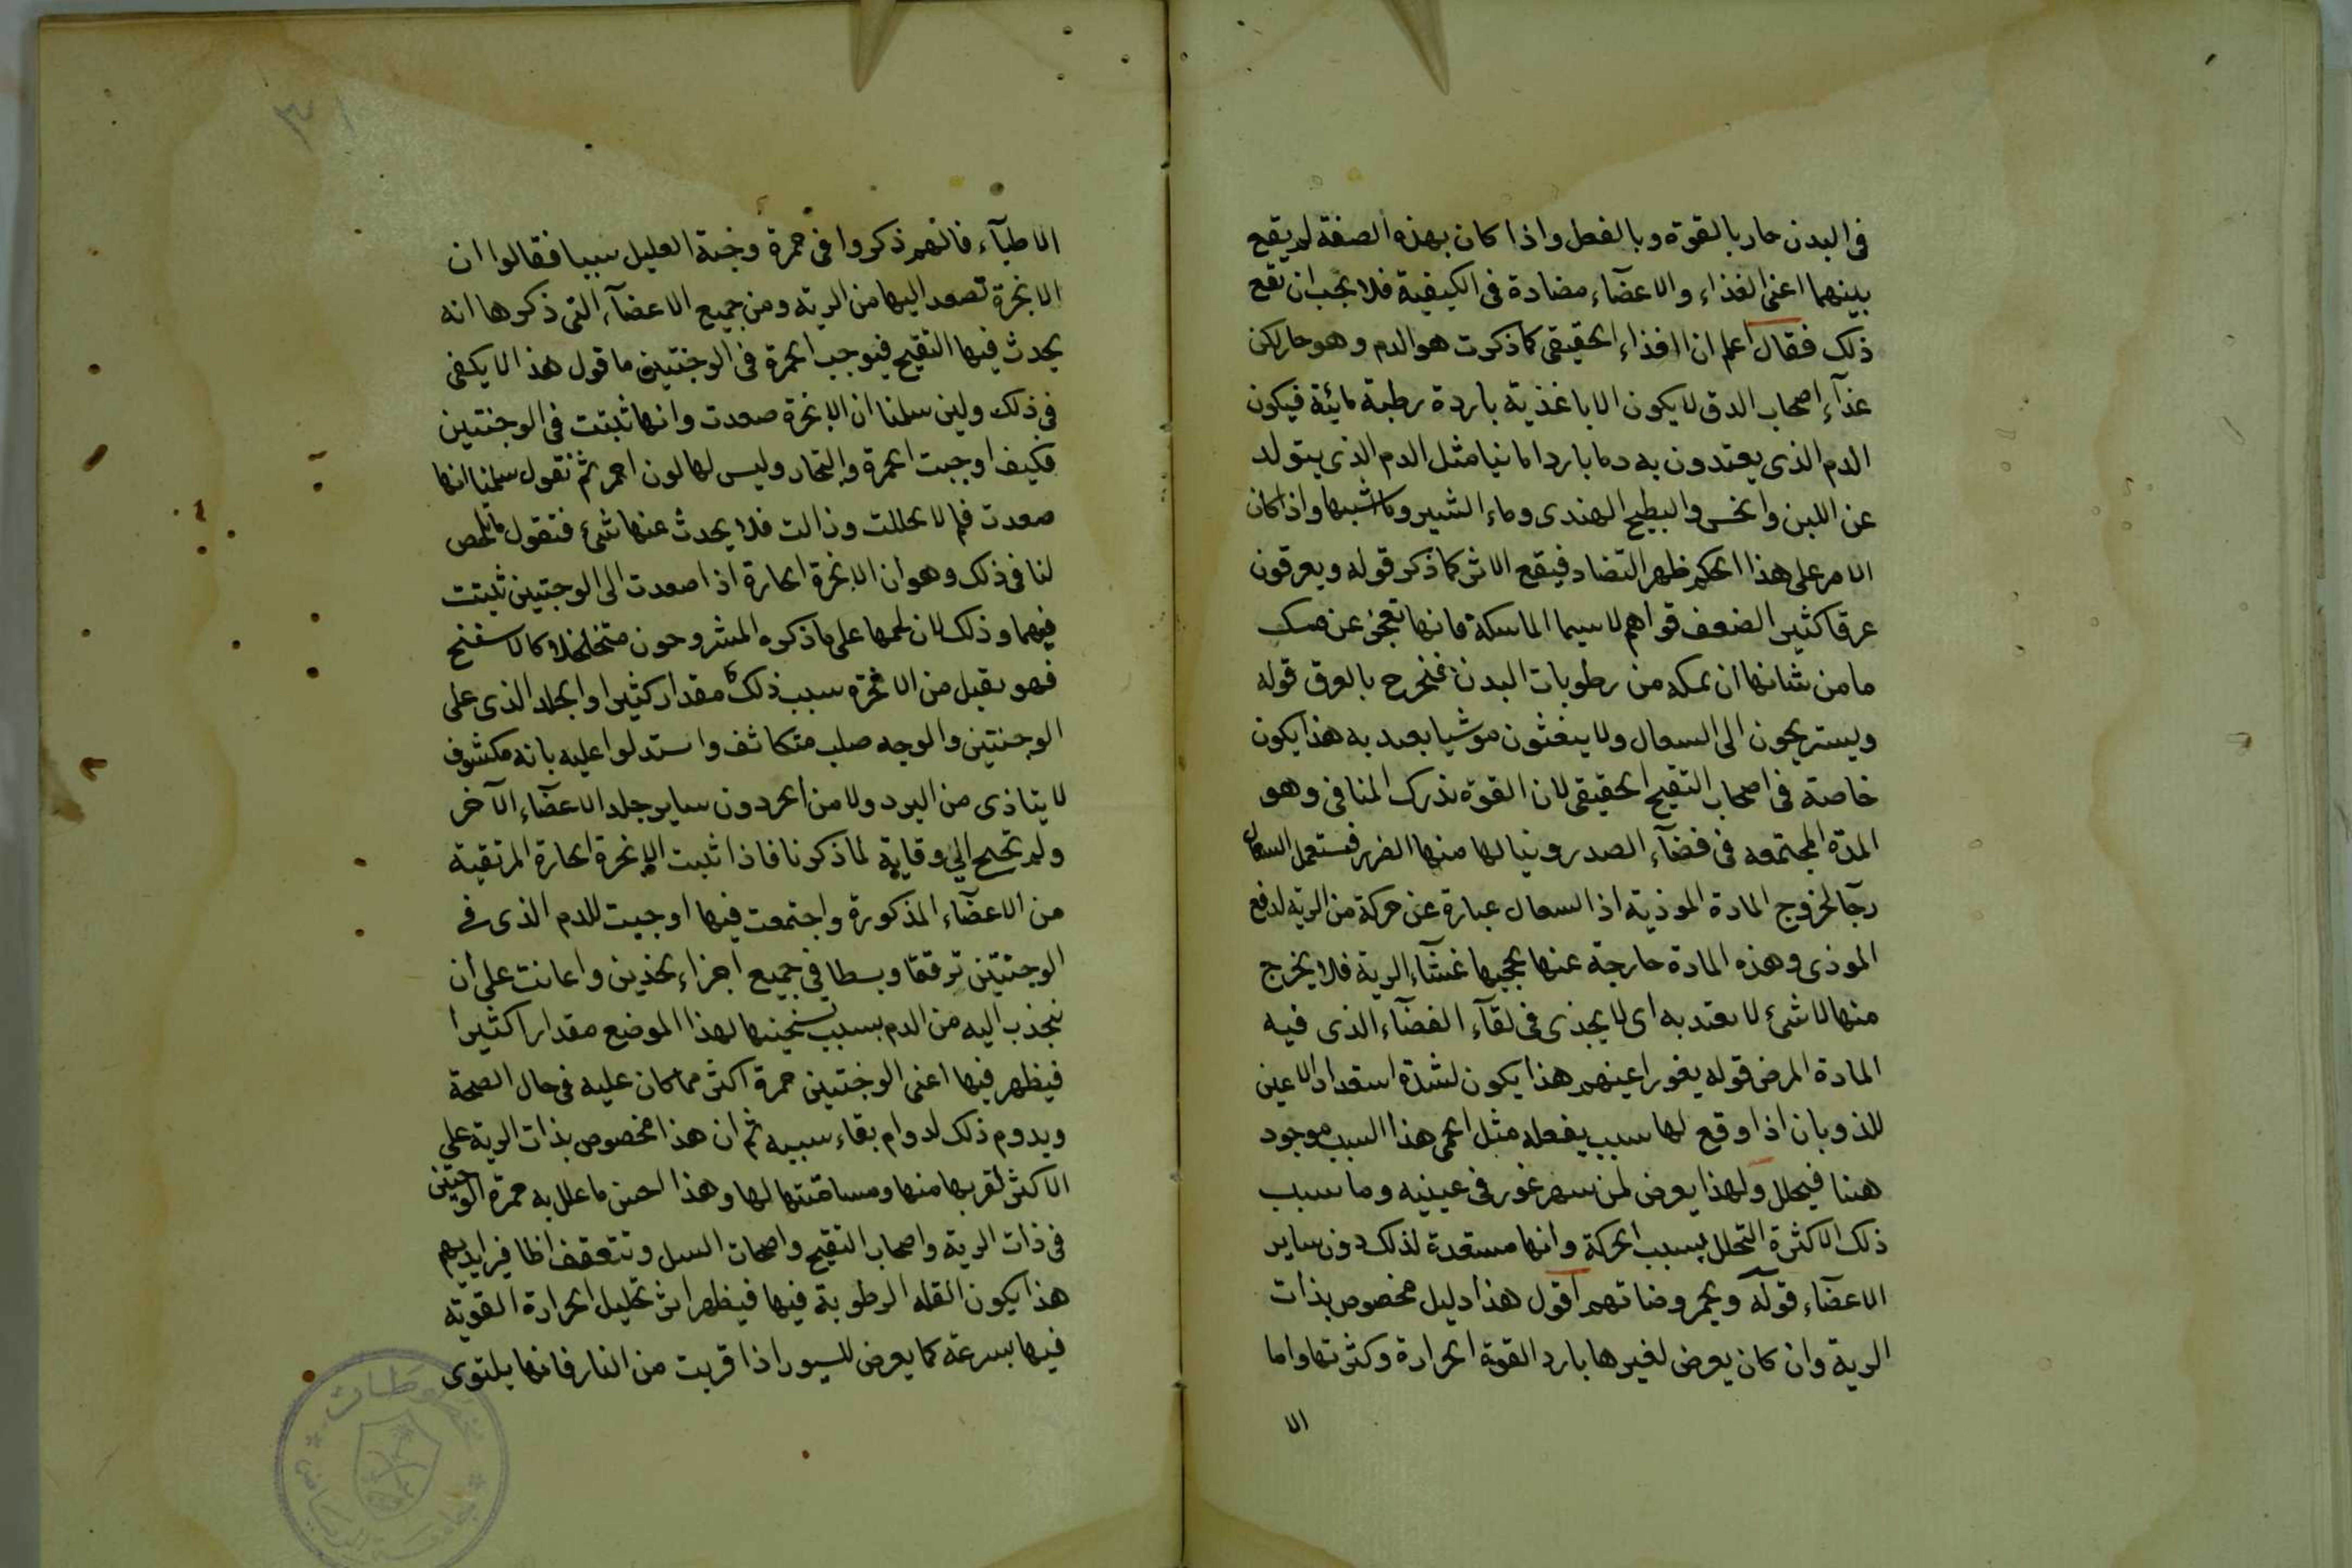 فى البدن حار بالقوة وبالفعل واذا كان بهذه الصفة لم يقع
بينهما اعنى الغذاء والاعضآء مضادة فى الكيفية فلا يجب ان تقع
ذلك فقال اعلم ان الغذاء الحقيقى كما ذكرت هو الدم وهو حار لكن
غذآء اصحاب الدق لا يكون الا باغذية باردة رطبة مائية فيكون
الدم الذى يغتدون به دما باردا مائيا مثل الدم الذى يتولد
عن اللبن والخس والبطيخ الهندى وماء الشعير وما اشبهها واذا كان
الامر على هذا الحكم ظهر التضاد فيقع الاثر كما ذكر قوله ويعرقون
عرقا كثيرا لضعف قواهم لا سيما الماسكة فانها تعجز عن مسك
ما من شانها ان تمسكه من رطوبات البدن فتخرج بالعرق قوله
ويستريحون الى السعال ولا ينفثون شيا يعتد به هذا يكون
خاصة فى اصحاب التقيح الحقيقى لان القوة تدرك المنافى وهو
المدة المجتمعه فى فضآء الصدر وينالها منها الضرر فتستعمل السعال
رجآ لخروج المادة الموذية اذ السعال عبارة عن حركة من الرية لدفع
الموذى وهذه المادة خارجة عنها يحجبها غشآء الرية فلا يخرج
منها الا شئ لا يعتد به اى لا يجدى فى نقآء الفضآء الذى فيه
المادة المرض قوله يغور اعينهم هذا يكون لشدة استعداد الاعين
للذوبان اذا وقع لها سبب يفعله مثل الحمى هذا السبب موجود
هنا فيحلل ولهذا يعرض لمن سهر غور فى عينيه وما سبب
ذلك الا كثرة التحلل بسبب الحركة وانها مستعدة لذلك دون ساير
الاعضآء قوله ويحمر وجناتهم اقول هذا دليل مخصوص بذات
الرية وان كان يعرض لغيرها القوة الحرارة وكثرتها واما
الا
٣١
الاطبآء فانهم ذكروا فى حمرة وجنة العليل سببا فقالوا ان
الابخرة تصعد اليها من الرية ومن جميع الاعضآء التى ذكرها انه
يحدث فيها التقيح فيوجب الحمرة فى الوجنتين ما قول هذا لا يكفى
فى ذلك ولين سلمنا ان الابخرة صعدت وانها ثبتت فى الوجنتين
فكيف اوجبت الحمرة والبخار وليس لها لون احمر ثم نقول سلمنا انها
صعدت فلم لا تحللت وزالت فلا يحدث عنها شئ فنقول ما تلخص
لنا فى ذلك وهو ان الابخرة الحارة اذا صعدت الى الوجنتين ثبتت
فيهما وذلك لان لحمها على ما ذكره المشرحون متخلخلا كالاسفنج
فهو يقبل من الابخرة بسبب ذلك مقدار كثيرا والجلد الذى على
الوجنتين والوجه صلب متكاثف واستدلوا عليه بانه مكشوف
لا يتاذى من البرد ولا من الحر دون ساير جلد الاعضآء الآخر
ولم تحتج الى وقاية لما ذكرنا فاذا ثبت الابخرة الحارة المرتقية
من الاعضآء المذكورة واجتمعت فيها اوجبت للدم الذى فى
الوجنتين ترققا وبسطا فى جميع اجزاء واعانت على ان
ينجذب اليه من الدم بسبب تسخينها لهذا الموضع مقدارا كثيرا
فيظهر فيها اعنى الوجنتين حمرة اكثر مما كان عليه فى حال الصحة
ويدوم ذلك لدوام بقاء سببه ثم ان هذا مخصوص بذات الرية على
الاكثر لقربها منها ومسامتتها لها وهذا احسن ما علل به حمرة الوجنتين
فى ذات الرية واصحاب التقيح واصحاب السل وتتعقف اظافير ايديهم
هذا يكون لقلة الرطوبة فيها فيظهر اثر تحليل الحرارة القوية
فيها بسرعة كما يعرض للسيور اذا قربت من النار فانها يلتوى